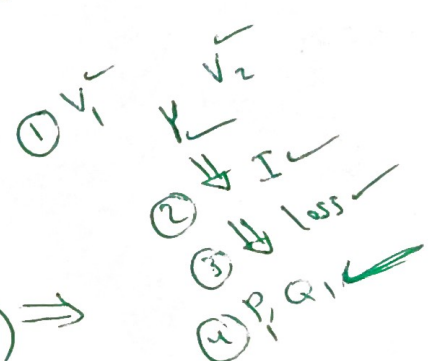 ① V₁ ✓ V₂ ✓
Y ✓
② ⇓ I ✓
③ ⇓ loss ✓
) ⇒ ④ P₁, Q₁ ✓